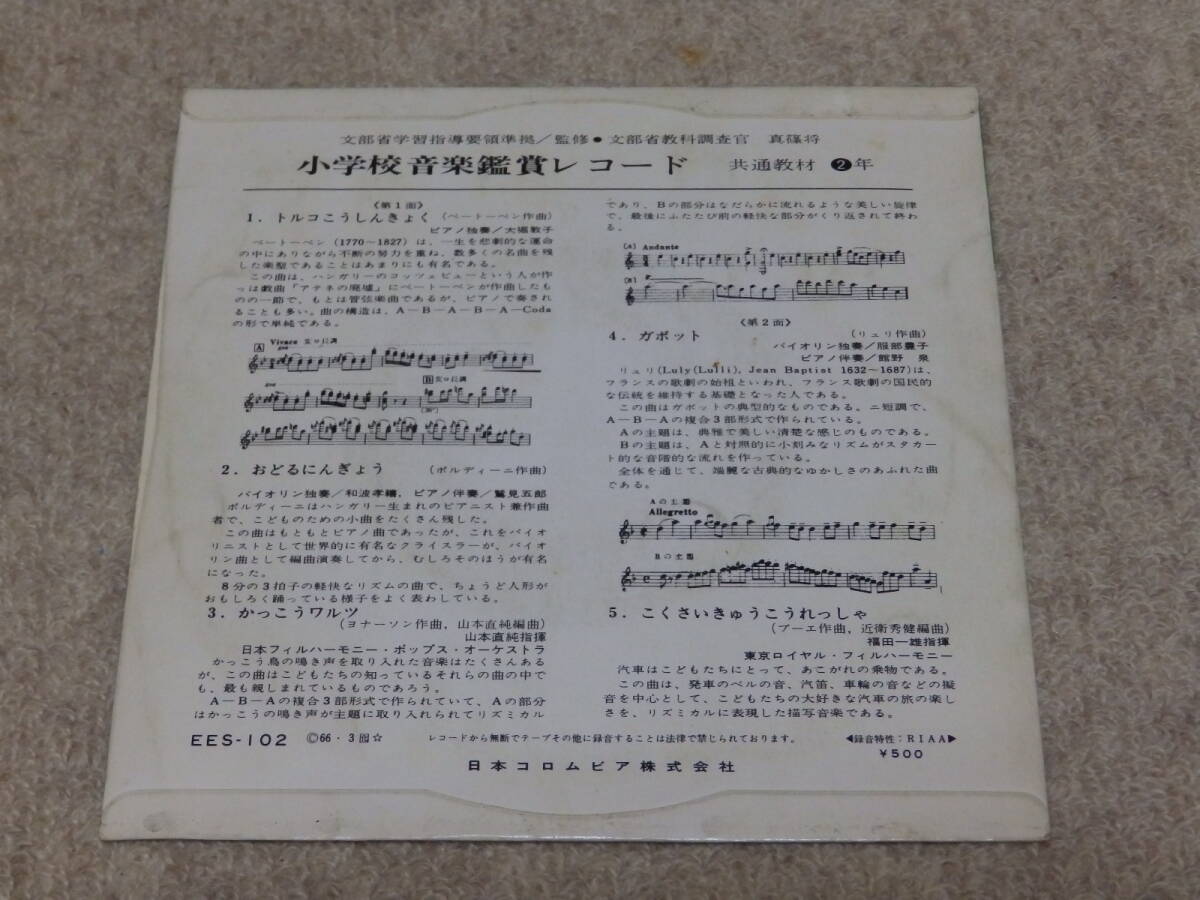 文部省学習指導要領準拠/監修●文部省教科調査官 真篠将
小学校音楽鑑賞レコード 共通教材 ❷年
《第1面》
1. トルコこうしんきょく (ベートーベン作曲)
ピアノ独奏/大堀敦子
ベートーベン (1770〜1827) は、一生を悲劇的な運命
の中にありながら不断の努力を重ね、数多くの名曲を残
した楽聖であることはあまりにも有名である。
この曲は、ハンガリーのコッツェビューという人が作
っは戯曲「アテネの廃墟」にベートーベンが作曲したも
のの一節で、もとは管弦楽曲であるが、ピアノで奏され
ることも多い。曲の構造は、A−B−A−B−A−Coda
の形で単純である。
A Vivace 変ロ長調
B 変ロ長調
2. おどるにんぎょう (ポルディーニ作曲)
バイオリン独奏/和波孝禧, ピアノ伴奏/鷲見五郎
ポルディーニはハンガリー生まれのピアニスト兼作曲
者で、こどものための小曲をたくさん残した。
この曲はもともとピアノ曲であったが、これをバイオ
リニストとして世界的に有名なクライスラーが、バイオ
リン曲として編曲演奏してから、むしろそのほうが有名
になった。
8分の3拍子の軽快なリズムの曲で、ちょうど人形が
おもしろく踊っている様子をよく表わしている。
3. かっこうワルツ
(ヨナーソン作曲, 山本直純編曲)
山本直純指揮
日本フィルハーモニー・ポップス・オーケストラ
かっこう鳥の鳴き声を取り入れた音楽はたくさんある
が、この曲はこどもたちの知っているそれらの曲の中で
も、最も親しまれているものであろう。
A−B−Aの複合3部形式で作られていて、Aの部分
はかっこうの鳴き声が主題に取り入れられてリズミカル
であり、Bの部分はなだらかに流れるような美しい旋律
で、最後にふたたび前の軽快な部分がくり返されて終わ
る。
(A) Andante
(B)
《第2面》
4. ガボット (リュリ作曲)
バイオリン独奏/服部豊子
ピアノ伴奏/館野 泉
リュリ(Luly(Lulli), Jean Baptist 1632〜1687)は、
フランスの歌劇の始祖といわれ、フランス歌劇の国民的
な伝統を維持する基礎となった人である。
この曲はガボットの典型的なものである。ニ短調で、
A−B−Aの複合3部形式で作られている。
Aの主題は、典雅で美しい清楚な感じのものである。
Bの主題は、Aと対照的に小刻みなリズムがスタカー
ト的な音階的な流れを作っている。
全体を通じて、端麗な古典的なゆかしさのあふれた曲
である。
Aの主題
Allegretto
Bの主題
5. こくさいきゅうこうれっしゃ
(ブーエ作曲, 近衛秀健編曲)
福田一雄指揮
東京ロイヤル・フィルハーモニー
汽車はこどもたちにとって、あこがれの乗物である。
この曲は、発車のベルの音、汽笛、車輪の音などの擬
音を中心として、こどもたちの大好きな汽車の旅の楽し
さを、リズミカルに表現した描写音楽である。
EES-102 Ⓒ66・3 ☆ レコードから無断でテープその他に録音することは法律で禁じられております。 ◀録音特性:RIAA▶
¥500
日本コロムビア株式会社